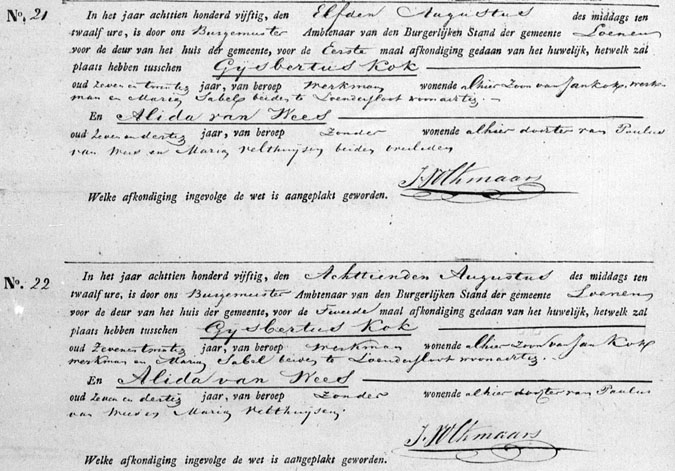 No. 21
In het jaar achttien honderd vijftig, den Elfden Augustus des middags ten
twaalf ure, is door ons Burgemeister Ambtenaar van den Burgerlijken Stand der gemeente Loenen
voor de deur van het huis der gemeente, voor de Eerste maal afkondiging gedaan van het huwelijk, hetwelk zal
plaats hebben tusschen Gijsbertus Kok
oud Zeven en twintig jaar, van beroep Werkman wonende alhier Zoon van Jan Kok, werk-
man en Maria Sabel beiden te Loendersloot woonachtig.
En Alida van Wees
oud Zeven en dertig jaar, van beroep Zonder wonende alhier dochter van Paulus
van Wees en Maria Velthuijsen beiden overleden
Welke afkondiging ingevolge de wet is aangeplakt geworden.
No. 22
In het jaar achttien honderd vijftig, den Achttienden Augustus des middags ten
twaalf ure, is door ons Burgemeister Ambtenaar van den Burgerlijken Stand der gemeente Loenen
voor de deur van het huis der gemeente, voor de Tweede maal afkondiging gedaan van het huwelijk, hetwelk zal
plaats hebben tusschen Gijsbertus Kok
oud Zeven en twintig jaar, van beroep Werkman wonende alhier Zoon van Jan Kok
werkman en Maria Sabel beiden te Loendersloot woonachtig.
En Alida van Wees
oud Zeven en dertig jaar, van beroep Zonder wonende alhier dochter van Paulus
van Wees en Maria Velthuijsen.
Welke afkondiging ingevolge de wet is aangeplakt geworden.